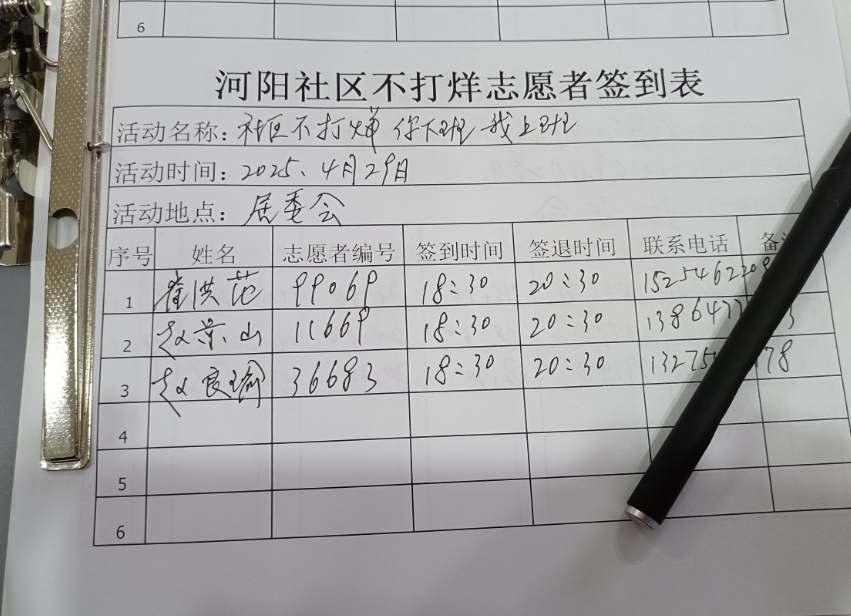 6
河阳社区不打烊志愿者签到表
活动名称：社区不打烊 你下班 我上班
活动时间：2025、4月29日
活动地点：居委会
序号 姓名 志愿者编号 签到时间 签退时间 联系电话 备
1 崔洪范 99069 18:30 20:30 1525462
2 赵景山 11669 18:30 20:30 138647 3
3 赵良瑜 36683 18:30 20:30 13275 78
4
5
6